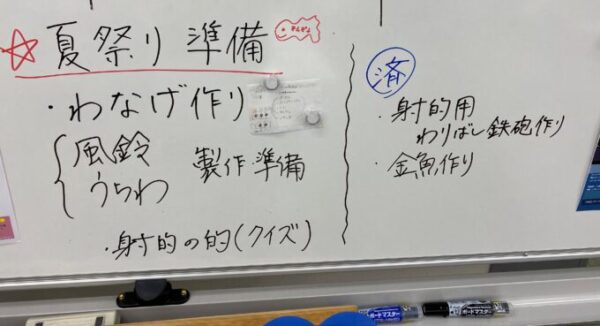 ☆夏祭り 準備
・わなげ作り
風鈴
うちわ
製作準備
・射的の的(クイズ)
済
・射的用
わりばし鉄砲作り
・金魚作り
ボードマスター
ボードマスター